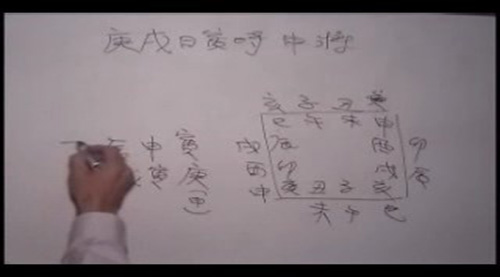 庚戌日寅時申將
亥子丑寅
巳午未申
戌 辰 酉 卯
酉 卯 戌 辰
申 寅丑子亥
未午巳
申 寅
寅 庚